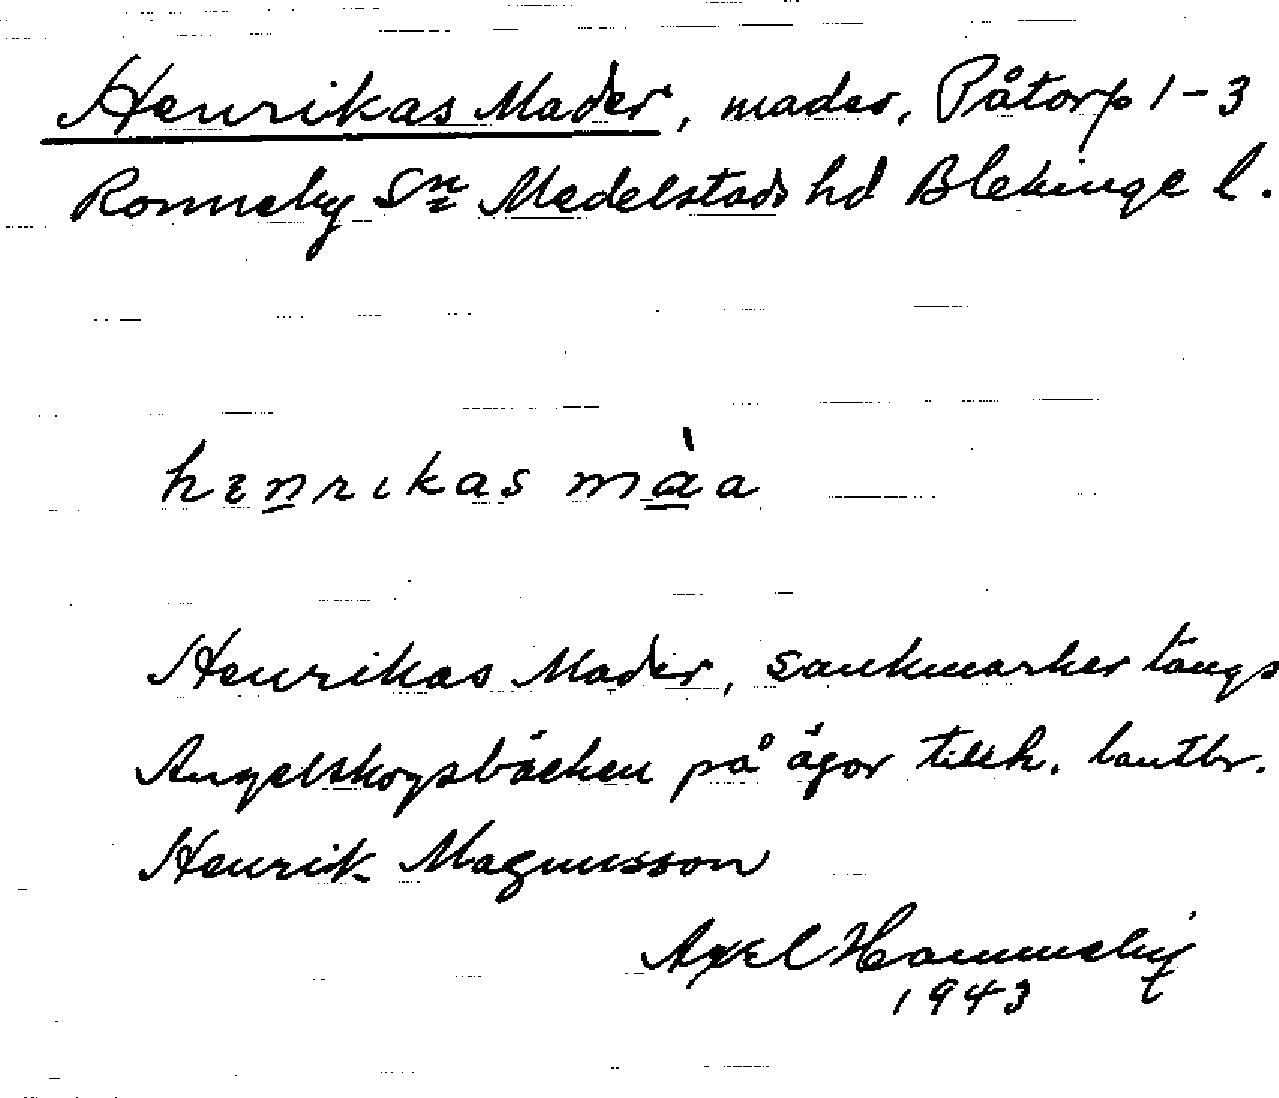 Henrikas Mader, mader, Påtorp 1-3
Ronneby Sn Medelstads hd Blekinge l.
henrıkas màa
Henrikas Mader, sankmarker längs
Angelskogsbäcken på ägor tillh. lantbr.
Henrik Magnusson
Axel Hammeby
1943